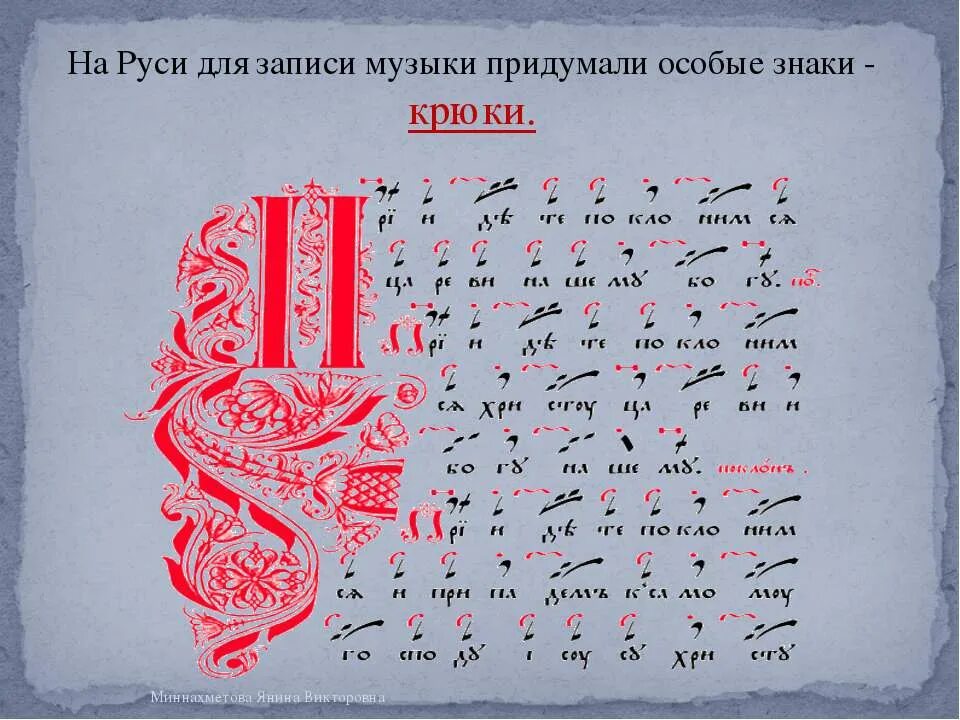 На Руси для записи музыки придумали особые знаки -
крюки.
Прї и дѣ те по кло ним ся
ца ре ви на ше му бо гу. по̑.
Прї и дѣ те по кло ним
ся хри стоу ца ре ви и
бо гу на ше му. покло́нъ.
Прї и дѣ те по кло ним
ся и при па демъ к'са мо моу
го спо ду і соу су хри сту
Миннахметова Янина Викторовна